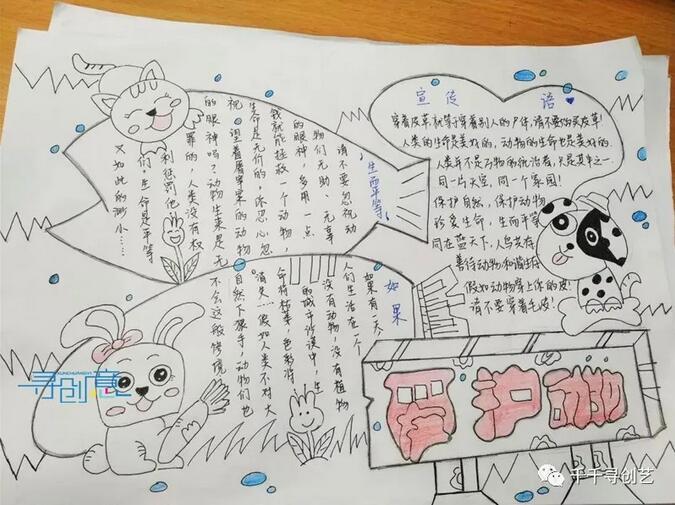 生而平等
请不要忽视动
物们无助、无辜
的眼神,多用一点
我就能拯救一个动物
生命是无价的,你忍心忽
视
的动物
的眼神吗?动物生来是无
罪的,人类没有权
利惩罚他
们,生命是平等
又如此的渺小……
宣传语
穿着皮草,就等于穿着别人的尸体,请不要购买皮草!
人类的生命是美好的,动物的生命也是美好的.
人类并不是万物的统治者,只是其中之一.
同一片天空,同一个家园!
保护自然,保护动物
珍爱生命,生而平等
同在蓝天下,人鸟共存
善待动物,和谐生存
假如动物穿上你的皮!
请不要穿着毛皮!
如果
如果有一天,
人们生活在一个
没有动物,没有植物
的城市沙漠中,生
命将枯萎,色彩将
消失……假如人类不对大
自然下狠手,动物们也
不会这般惨境
爱护动物
寻创意
XUNCHUANGYI
千千寻创艺